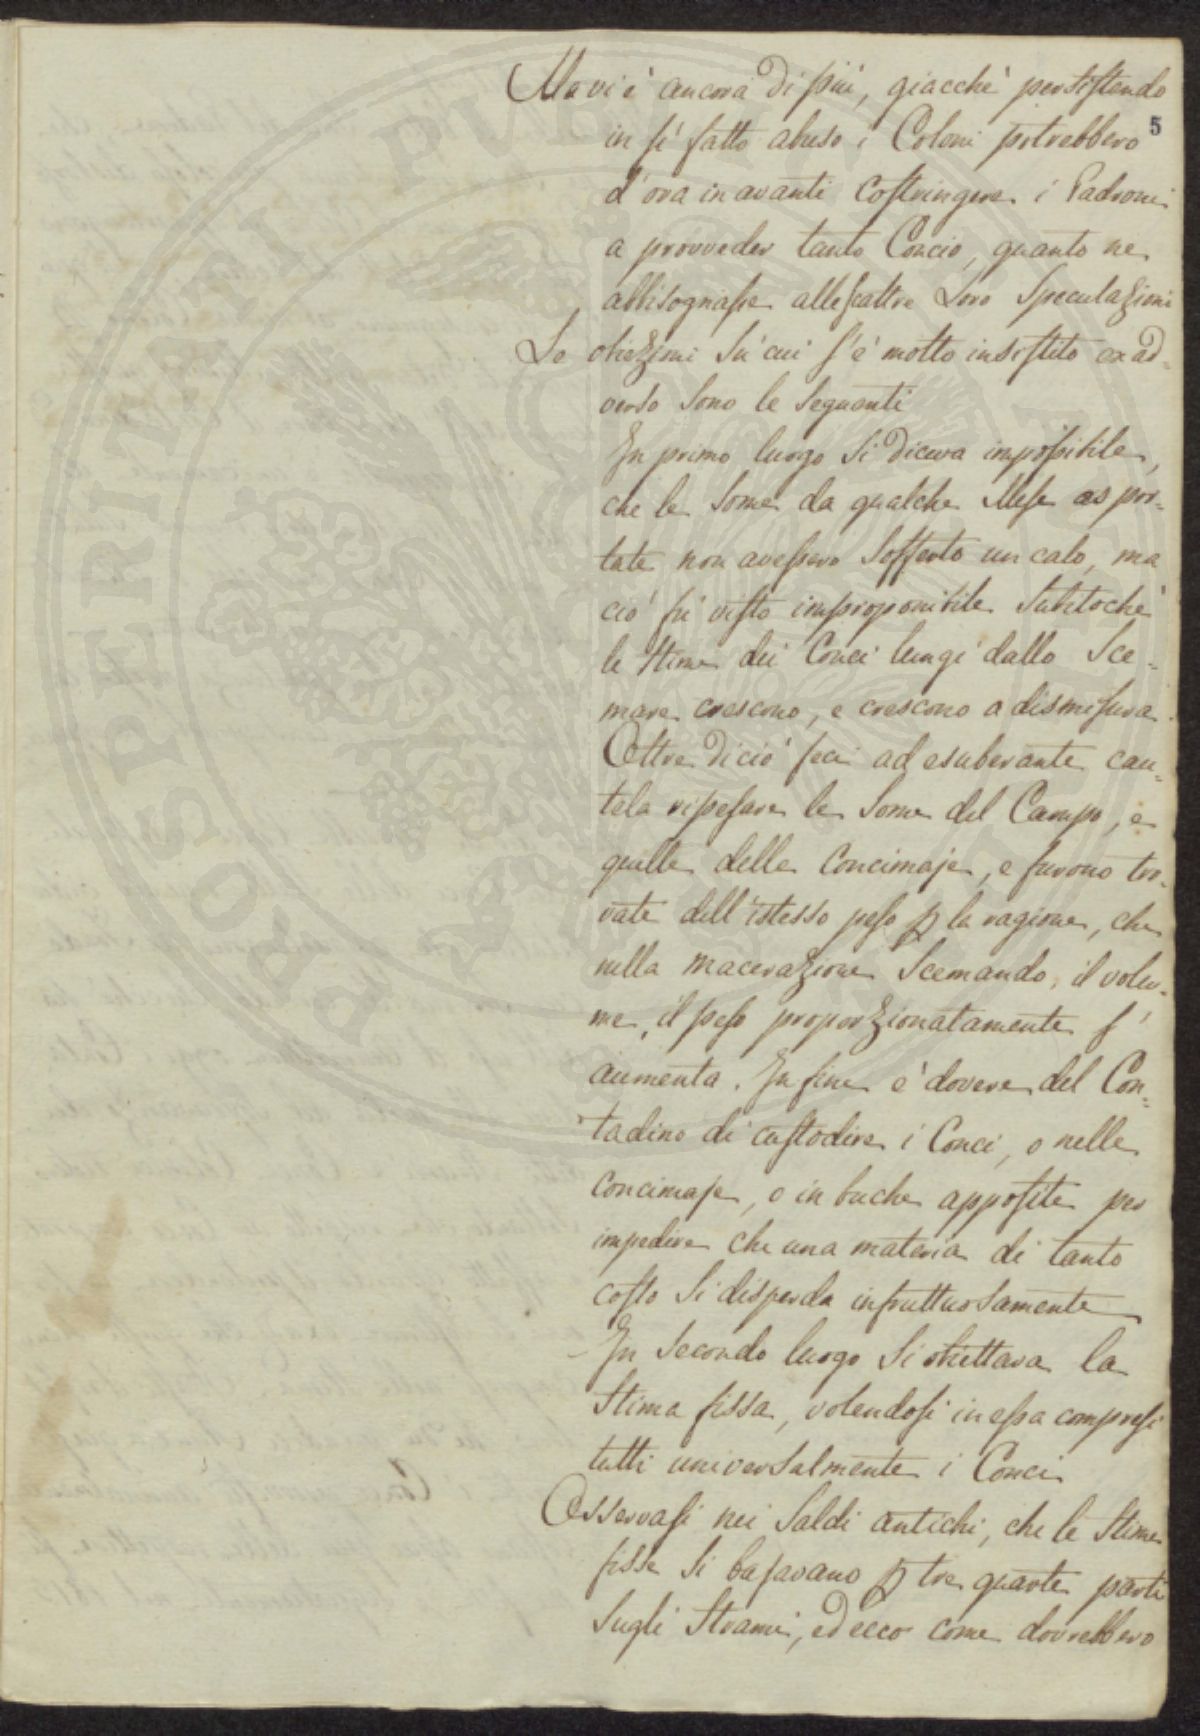 Ma vi è ancora di più, giacchè persistendo
5
in sì fatto abuso i Coloni potrebbero
d'ora in avanti costringere i Padroni
a provveder tanto Concio, quanto ne
abbisognasse alle scaltre Loro Speculazioni
Le obiezzioni Sù cui s'è molto insistito ex ad-
verso Sono le Seguenti
In primo luogo Si diceva impossibile,
che le Some da qualche Mese aspor-
tate non avessero Sofferto un calo, ma
ciò fù visto improponibile Subitochè
le Stime dei Conci lungi dallo Sce-
mare crescono, e crescono a dismisura.
Oltre di ciò feci ad esuberante cau-
tela ripesare le Some del Campo, e
quelle delle Concimaje, e furono tro-
vate dell'istesso peso p la ragione, che
nella macerazione Scemando, il volu-
me, il peso proporzionatamente s'
aumenta. In fine è dovere del Con-
tadino di custodire i Conci, o nelle
Concimaje, o in buche apposite per
impedire che una materia di tanto
costo Si disperda infruttuosamente
In Secondo luogo Si obiettava la
Stima fissa, volendosi in essa compresi
tutti universalmente i Conci
Osservasi nei Saldi antichi, che le Stime
fisse Si basavano p tre quarte parti
Sugli Strami, ed ecco come dovrebbero
PROSPERITATI PUBLICAE